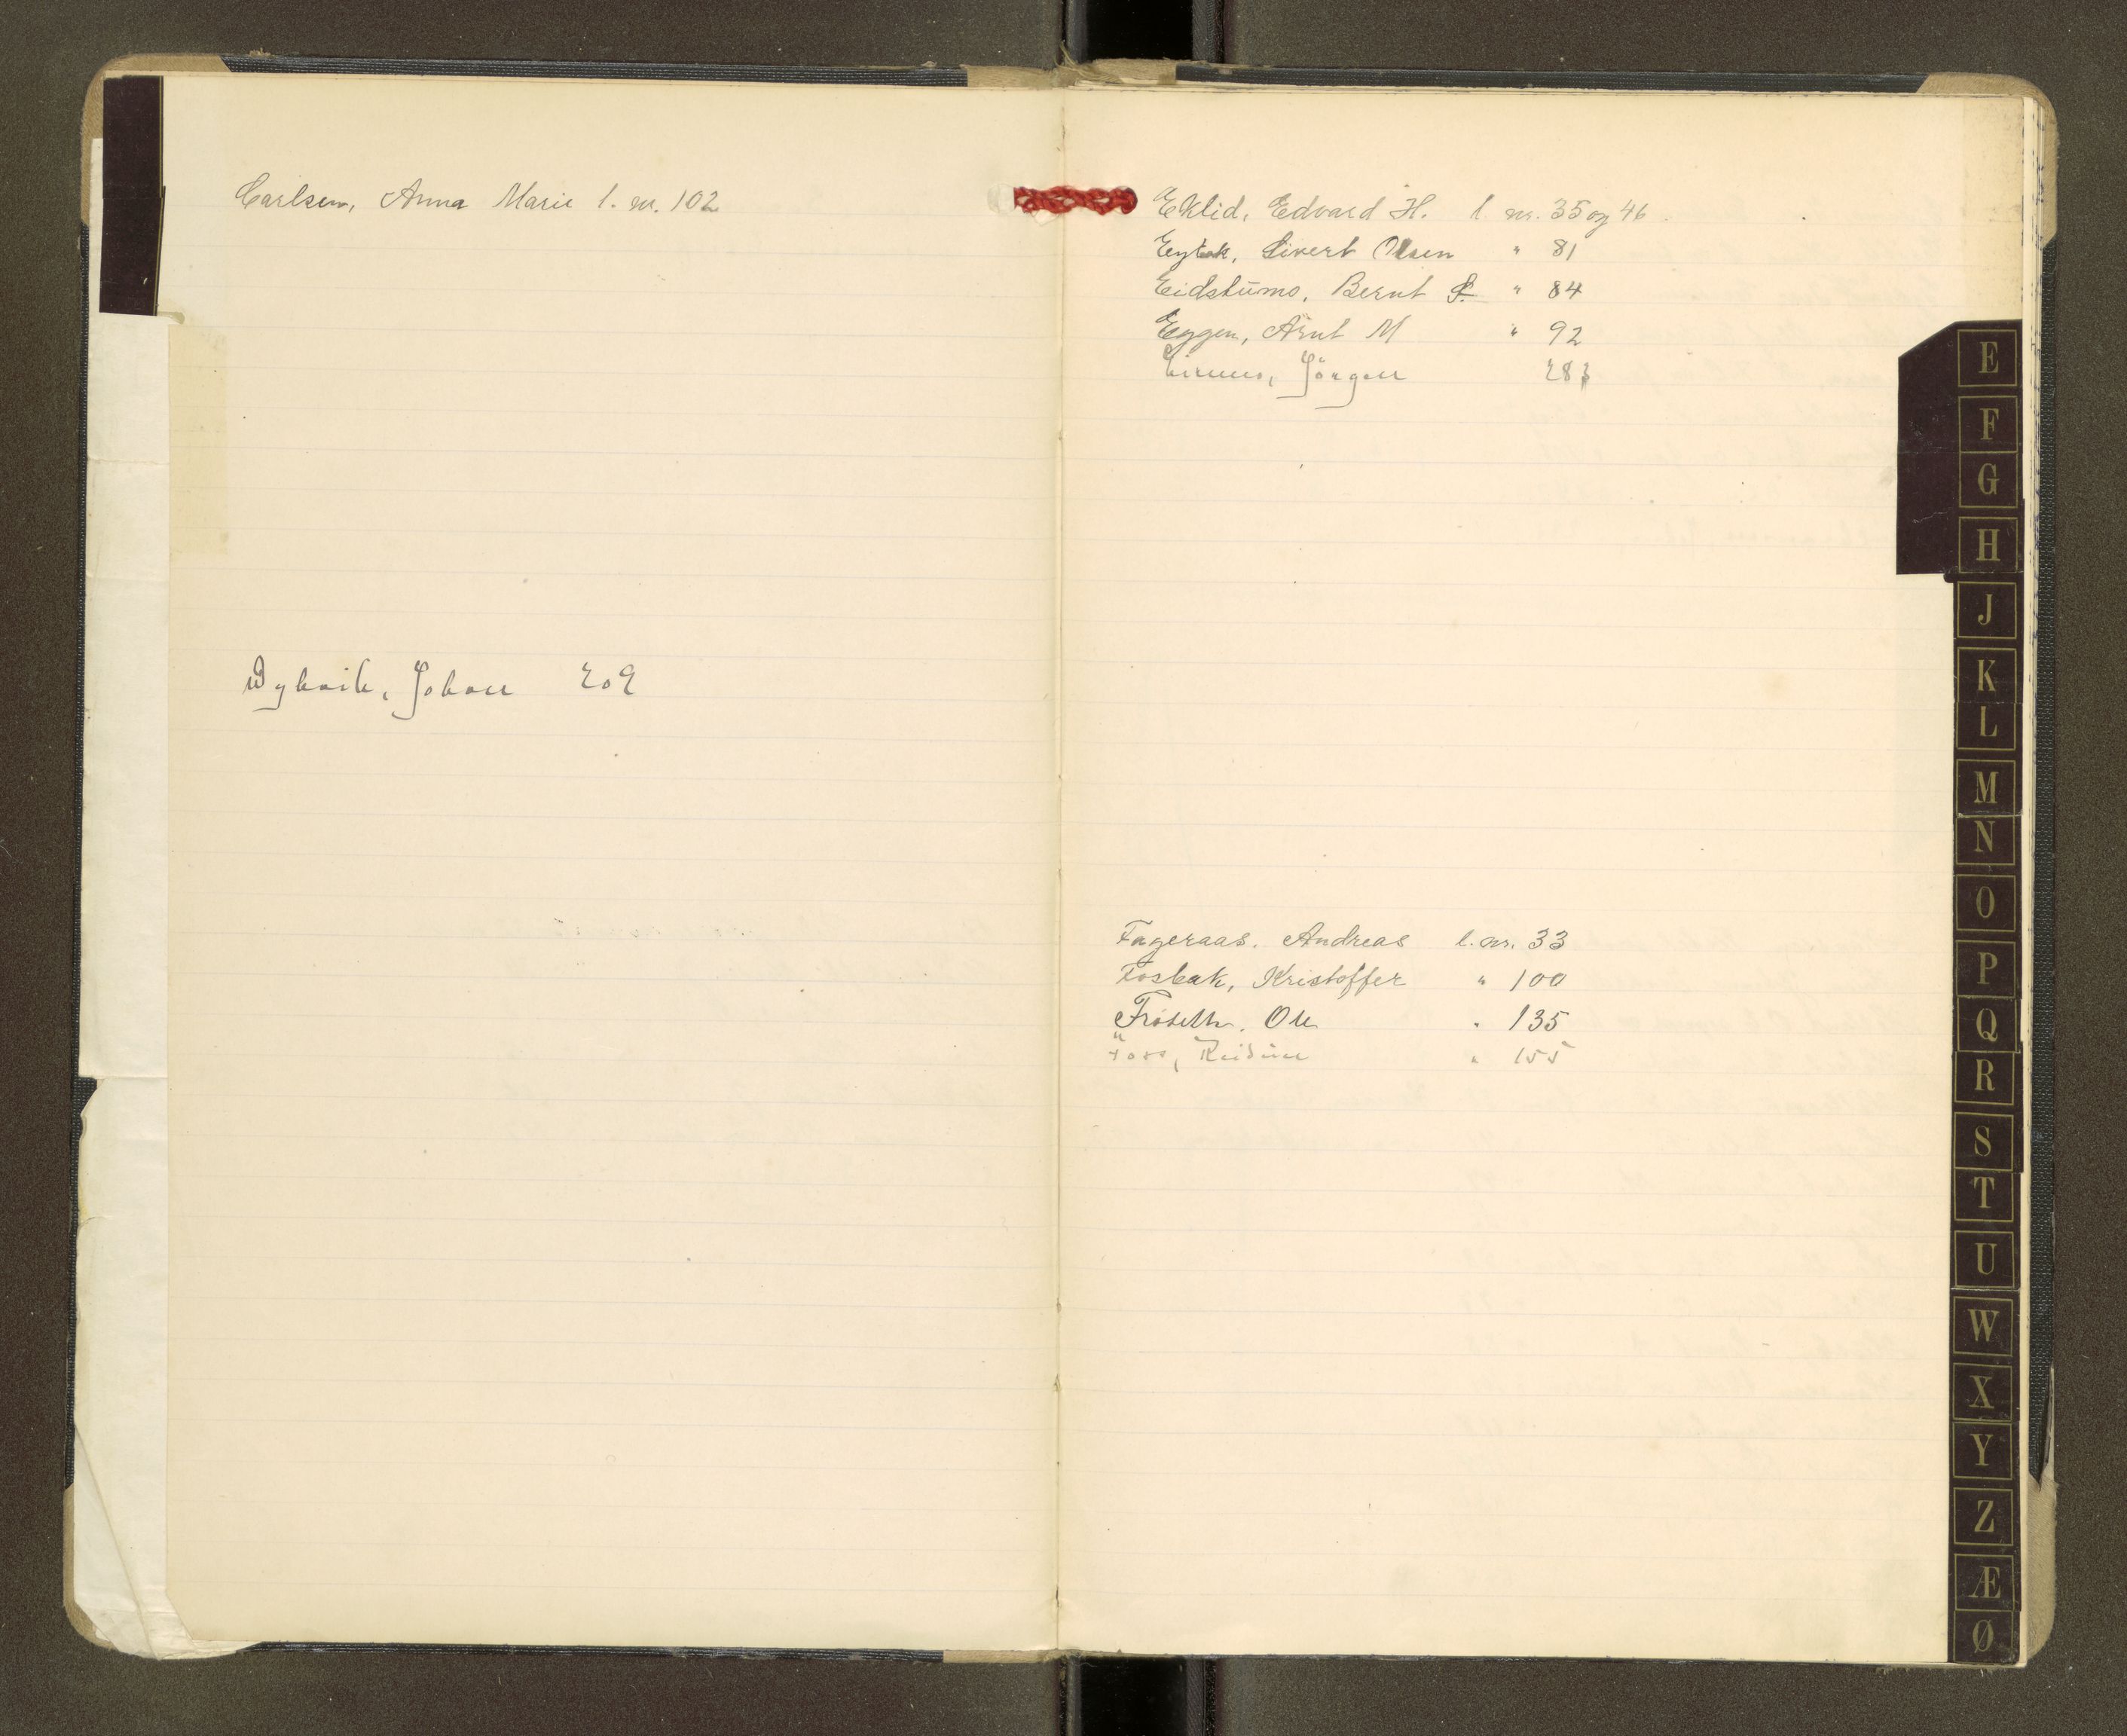 Carlsen, Anna Marie l. nr. 102
Dybvik, Johan 209
Eklid, Edvard H. l nr. 35 og 46
Sivert Olsen " 81
Eidstumo, Bernt S. " 84
Eggen, Arnt M " 92
Jörgen 283
Fageraas, Andreas l. nr. 33
Fosbak, Kristoffer " 100
Fröseth, Ole " 135
Foss, Reidun " 155
E
F
G
H
J
K
L
M
N
O
P
Q
R
S
T
U
W
X
Y
Z
Æ
Ø